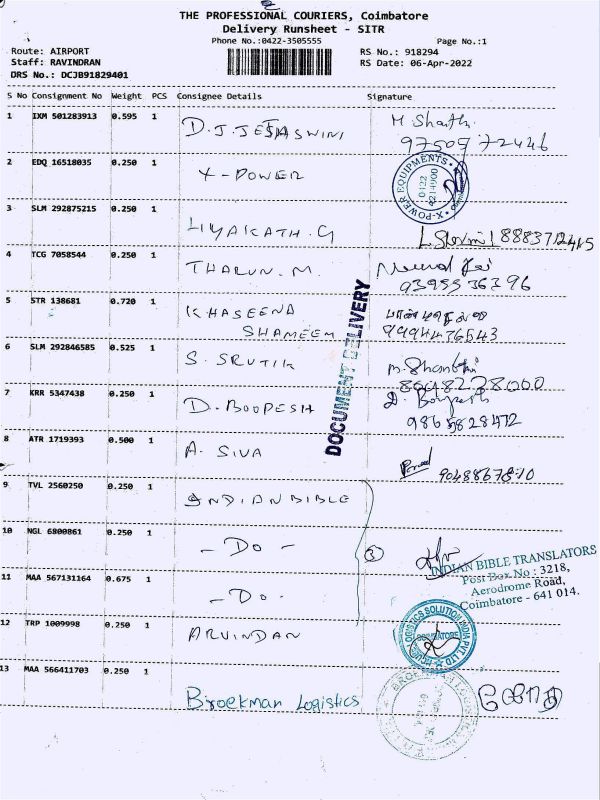 THE PROFESSIONAL COURIERS, Coimbatore
Delivery Runsheet - SITR
Phone No.:0422-3505555 Page No.:1
Route: AIRPORT RS No.: 918294
Staff: RAVINDRAN RS Date: 06-Apr-2022
DRS No.: DCJB91829401
S No Consignment No Weight PCS Consignee Details Signature
1 IXM 501283913 0.595 1 D.J.JETASWINI M. Shanthi
97509 72446
2 EDQ 16518035 0.250 1 X-POWER
X-POWER EQUIPMENTS
0422
3 SLM 292875215 0.250 1 LIYAKATH.G 8883712415
4 TCG 7058544 0.250 1 THARUN.M.
9395536396
5 STR 138681 0.720 1 KHASEENA
SHAMEEM 9994436543
6 SLM 292846585 0.525 1 S. SRUTIK M. Shanthi
DOCUMENT DELIVERY
7 KRR 5347438 0.250 1 D. BOOPESH D. Boopesh
9865828472
8 ATR 1719393 0.500 1 A. SIVA
9048867870
9 TVL 2560250 0.250 1 INDIAN BIBLE
10 NGL 6800861 0.250 1 - Do - 3
INDIAN BIBLE TRANSLATORS
Post Box No : 3218,
Aerodrome Road,
Coimbatore - 641 014.
11 MAA 567131164 0.675 1 - Do -
12 TRP 1009998 0.250 1 ARVINDAN
LOGISTICS SOLUTION INDIA PVT LTD
COIMBATORE
13 MAA 566411703 0.250 1 Broekman Logistics